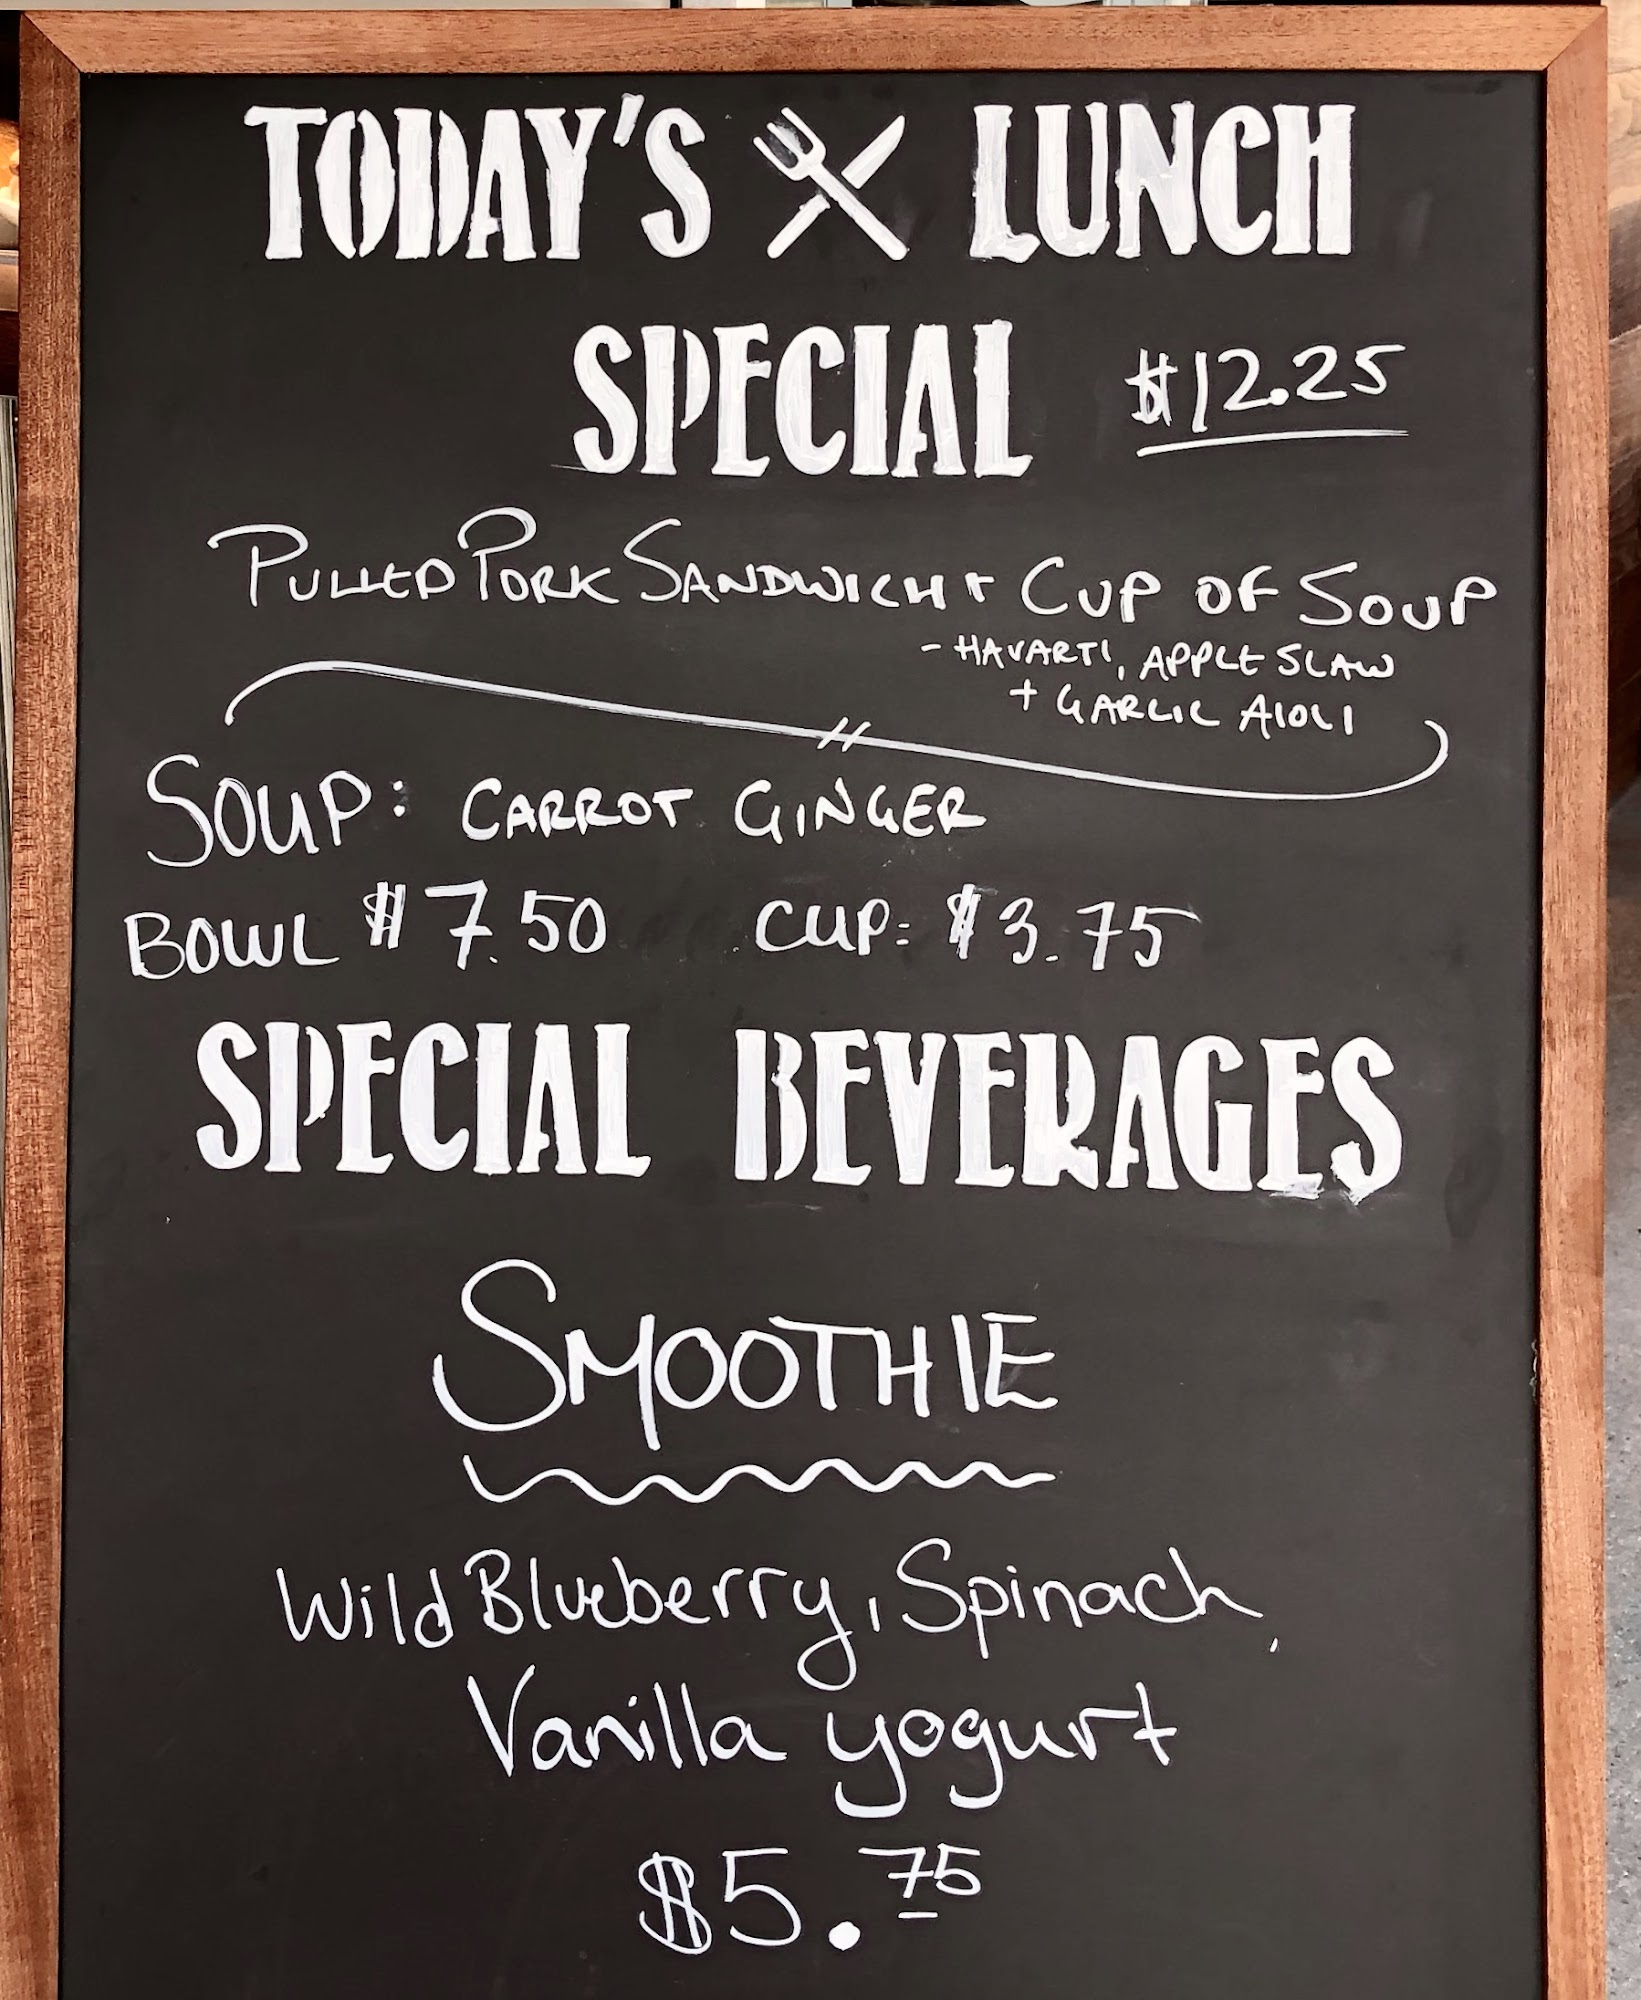 TODAY'S LUNCH
SPECIAL $12.25
PULLED PORK SANDWICH + CUP OF SOUP
- HAVARTI, APPLE SLAW
+ GARLIC AIOLI
SOUP: CARROT GINGER
BOWL $7.50 CUP: $3.75
SPECIAL BEVERAGES
SMOOTHIE
Wild Blueberry, Spinach,
Vanilla yogurt
$5.75